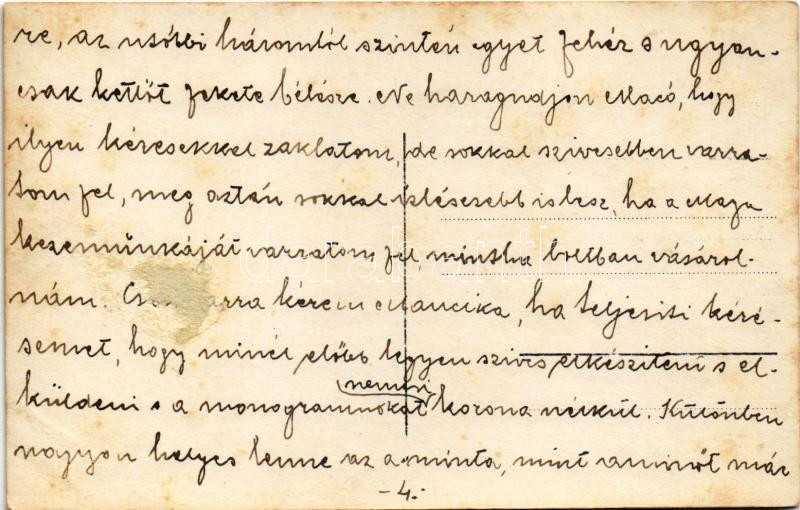 re, az utóbbi háromból szintén egyet fehér s ugyan-
csak kettőt fekete bélésre. Ne haragudjon Macó, hogy
ilyen kérésekkel zaklatom, de sokkal szivesebben varra-
tom fel, meg aztán sokkal izlésesebb is lesz, ha a Maga
kezemünkáját varratom fel, mintha boltban vásárol-
nám. arra kérem Mancika, ha teljesiti kéré-
semet, hogy minél előbb legyen szives elkésziteni s el-
nemesi
küldeni s a monogrammokat korona nélkül. Különben
nagyon helyes lenne az a minta, mint aminőt már
-4.-
darabanth